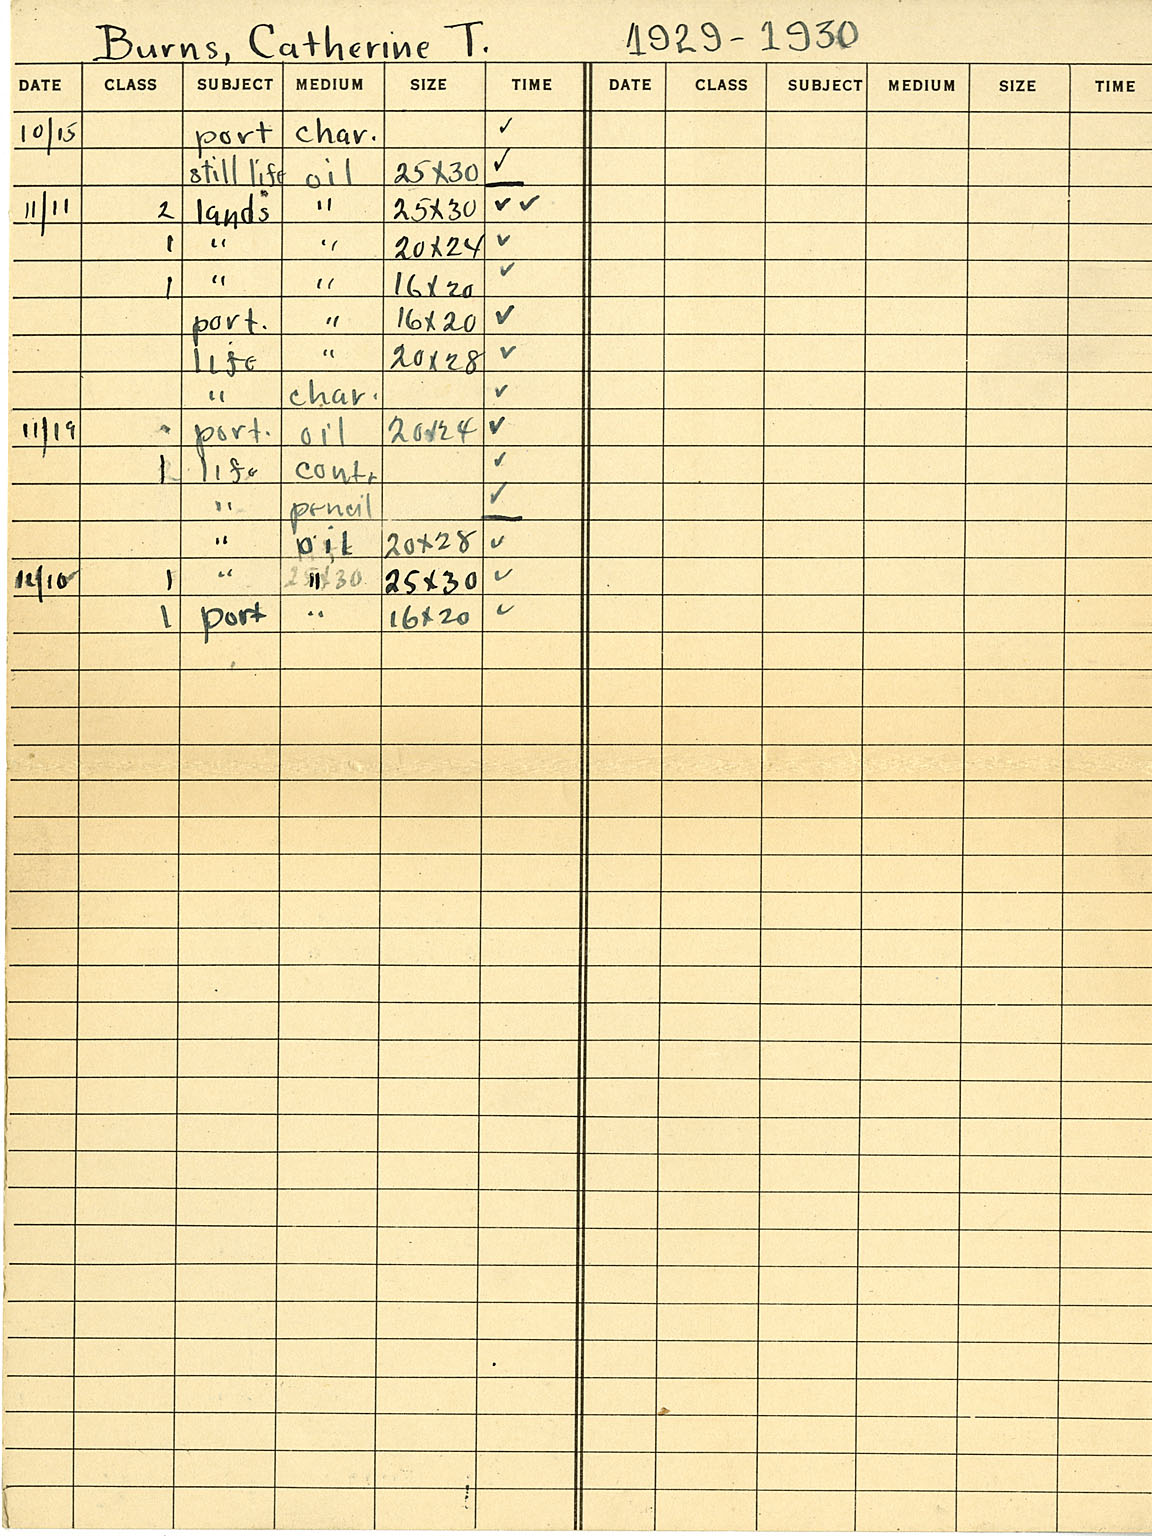 Burns, Catherine T. 1929-1930
DATE CLASS SUBJECT MEDIUM SIZE TIME DATE CLASS SUBJECT MEDIUM SIZE TIME
10/15 port char. ✓
still life oil 25X30 ✓
11/11 2 lands " 25X30 ✓✓
1 " " 20X24 ✓
1 " " 16X20 ✓
port. " 16X20 ✓
life " 20X28 ✓
" char. ✓
11/19 port. oil 20X24 ✓
1 life cont. ✓
" pencil ✓
" oil 20X28 ✓
12/10 1 " " 25X30 ✓
1 port " 16X20 ✓